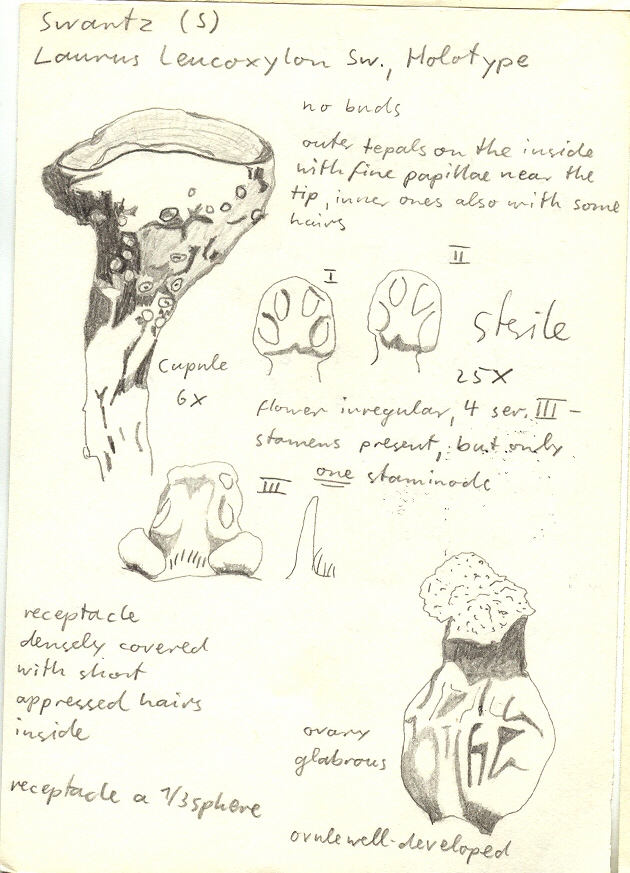 Swartz (S)
Laurus Leucoxylon Sw., Holotype
no buds
outer tepals on the inside
with fine papillae near the
tip, inner ones also with some
hairs
I
II
sterile
25X
Cupule
6X
flower irregular, 4 ser. III-
stamens present, but only
one staminode
III
receptacle
densely covered
with short
appressed hairs
inside
ovary
glabrous
receptacle a 1/3 sphere
ovule well-developed